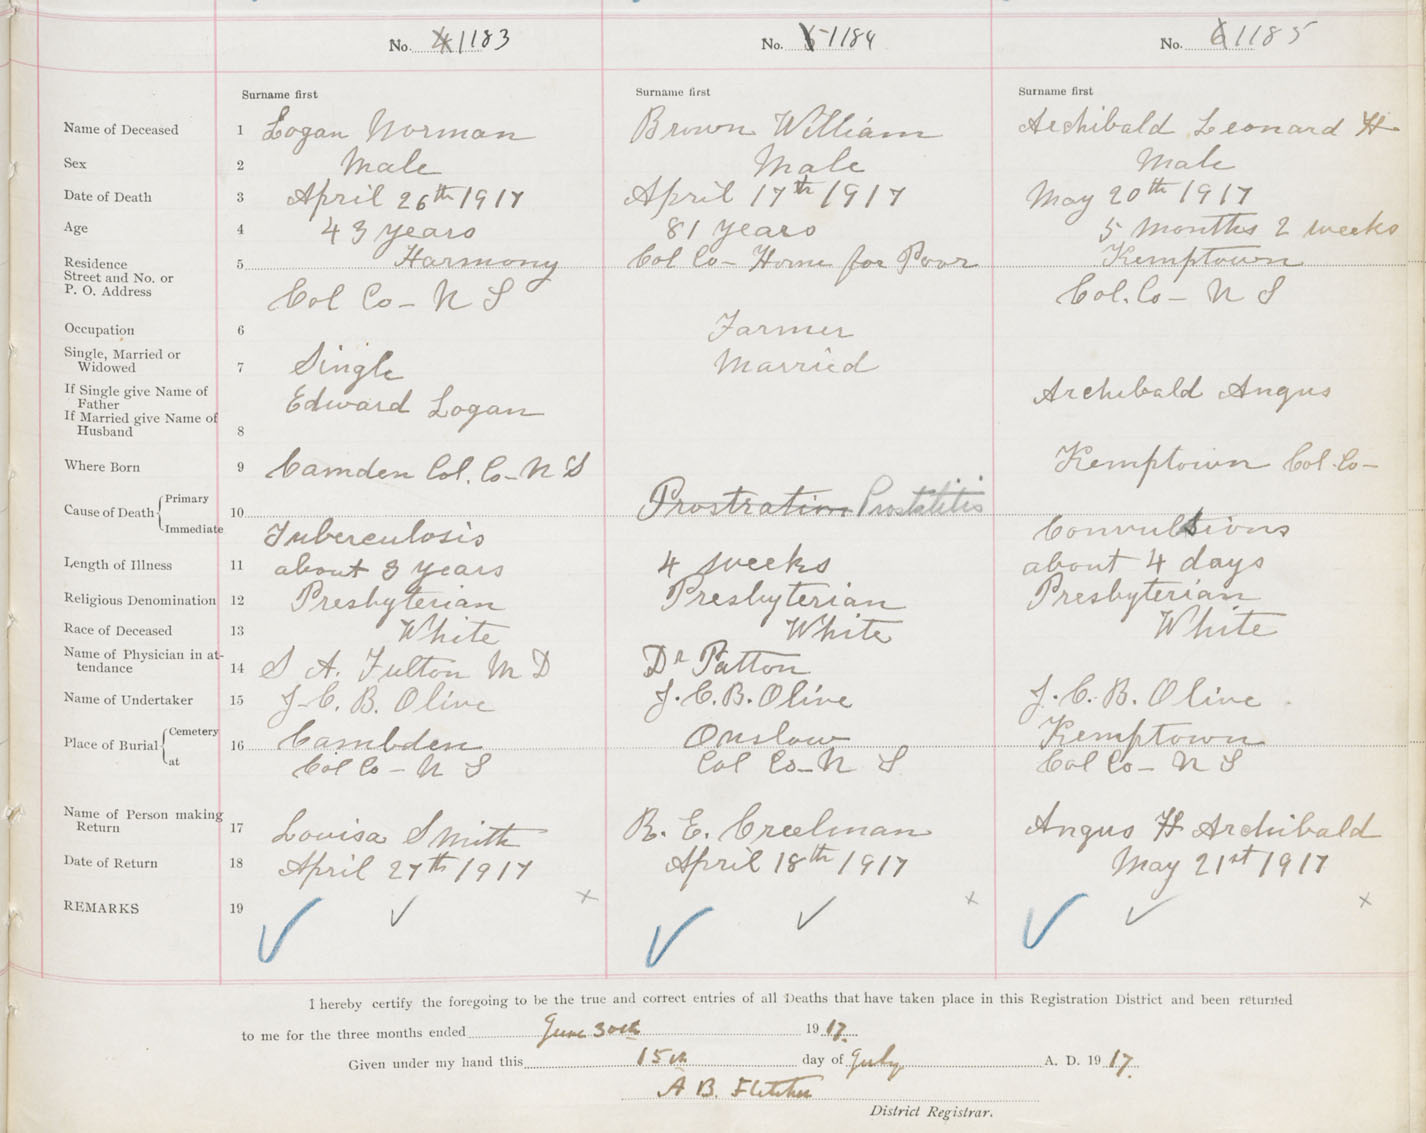 No. 4 1183 No. 5 1184 No. 6 1185
Surname first Surname first Surname first
Name of Deceased 1 Logan Norman Brown William Archibald Leonard H
Sex 2 Male Male Male
Date of Death 3 April 26th 1917 April 17th 1917 May 20th 1917
Age 4 43 years 81 years 5 months 2 weeks
Residence 5 Harmony Col Co- Home for Poor Kemptown
Street and No. or
P. O. Address Col Co- N S Col. Co- N S
Occupation 6 Farmer
Single, Married or
Widowed 7 Single Married
If Single give Name of
Father Edward Logan Archibald Angus
If Married give Name of
Husband 8
Where Born 9 Camden Col. Co- N S Kemptown Col. Co-
Primary
Cause of Death 10 Prostration Prostatitis
Immediate Tuberculosis Convulsions
Length of Illness 11 about 3 years 4 weeks about 4 days
Religious Denomination 12 Presbyterian Presbyterian Presbyterian
Race of Deceased 13 White White White
Name of Physician in at-
tendance 14 S A. Fulton M D Dr Patton
Name of Undertaker 15 J. C. B. Olive J. C. B. Olive J. C. B. Olive
Cemetery
Place of Burial 16 Cambden Onslow Kemptown
at Col Co- N S Col Co- N S Col Co- N S
Name of Person making
Return 17 Louisa Smith R. E. Creelman Angus H Archibald
Date of Return 18 April 27th 1917 April 18th 1917 May 21st 1917
REMARKS 19
I hereby certify the foregoing to be the true and correct entries of all Deaths that have taken place in this Registration District and been returned
to me for the three months ended June 30th 1917.
Given under my hand this 15th day of July A. D. 1917.
A B. Fletcher
District Registrar.